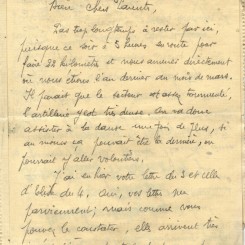 Bien chers Parents,
Pas trop longtemps à rester par ici,
puisque ce soir à 5 heures en route pour
faire 28 kilomètres et nous amener directement
où nous étions l'an dernier au mois de mars.
Il paraît que le secteur est assez tourmenté,
l'artillerie y est très dense. On va donc
assister à la danse une fois de plus, si
au moins ça pouvait être la dernière, on
pourrait y aller volontiers.
J'ai eu hier votre lettre du 3 et celle
d' du 4. Oui, vos lettres me
parviennent; mais comme vous
pouvez le constater, elles arrivent très